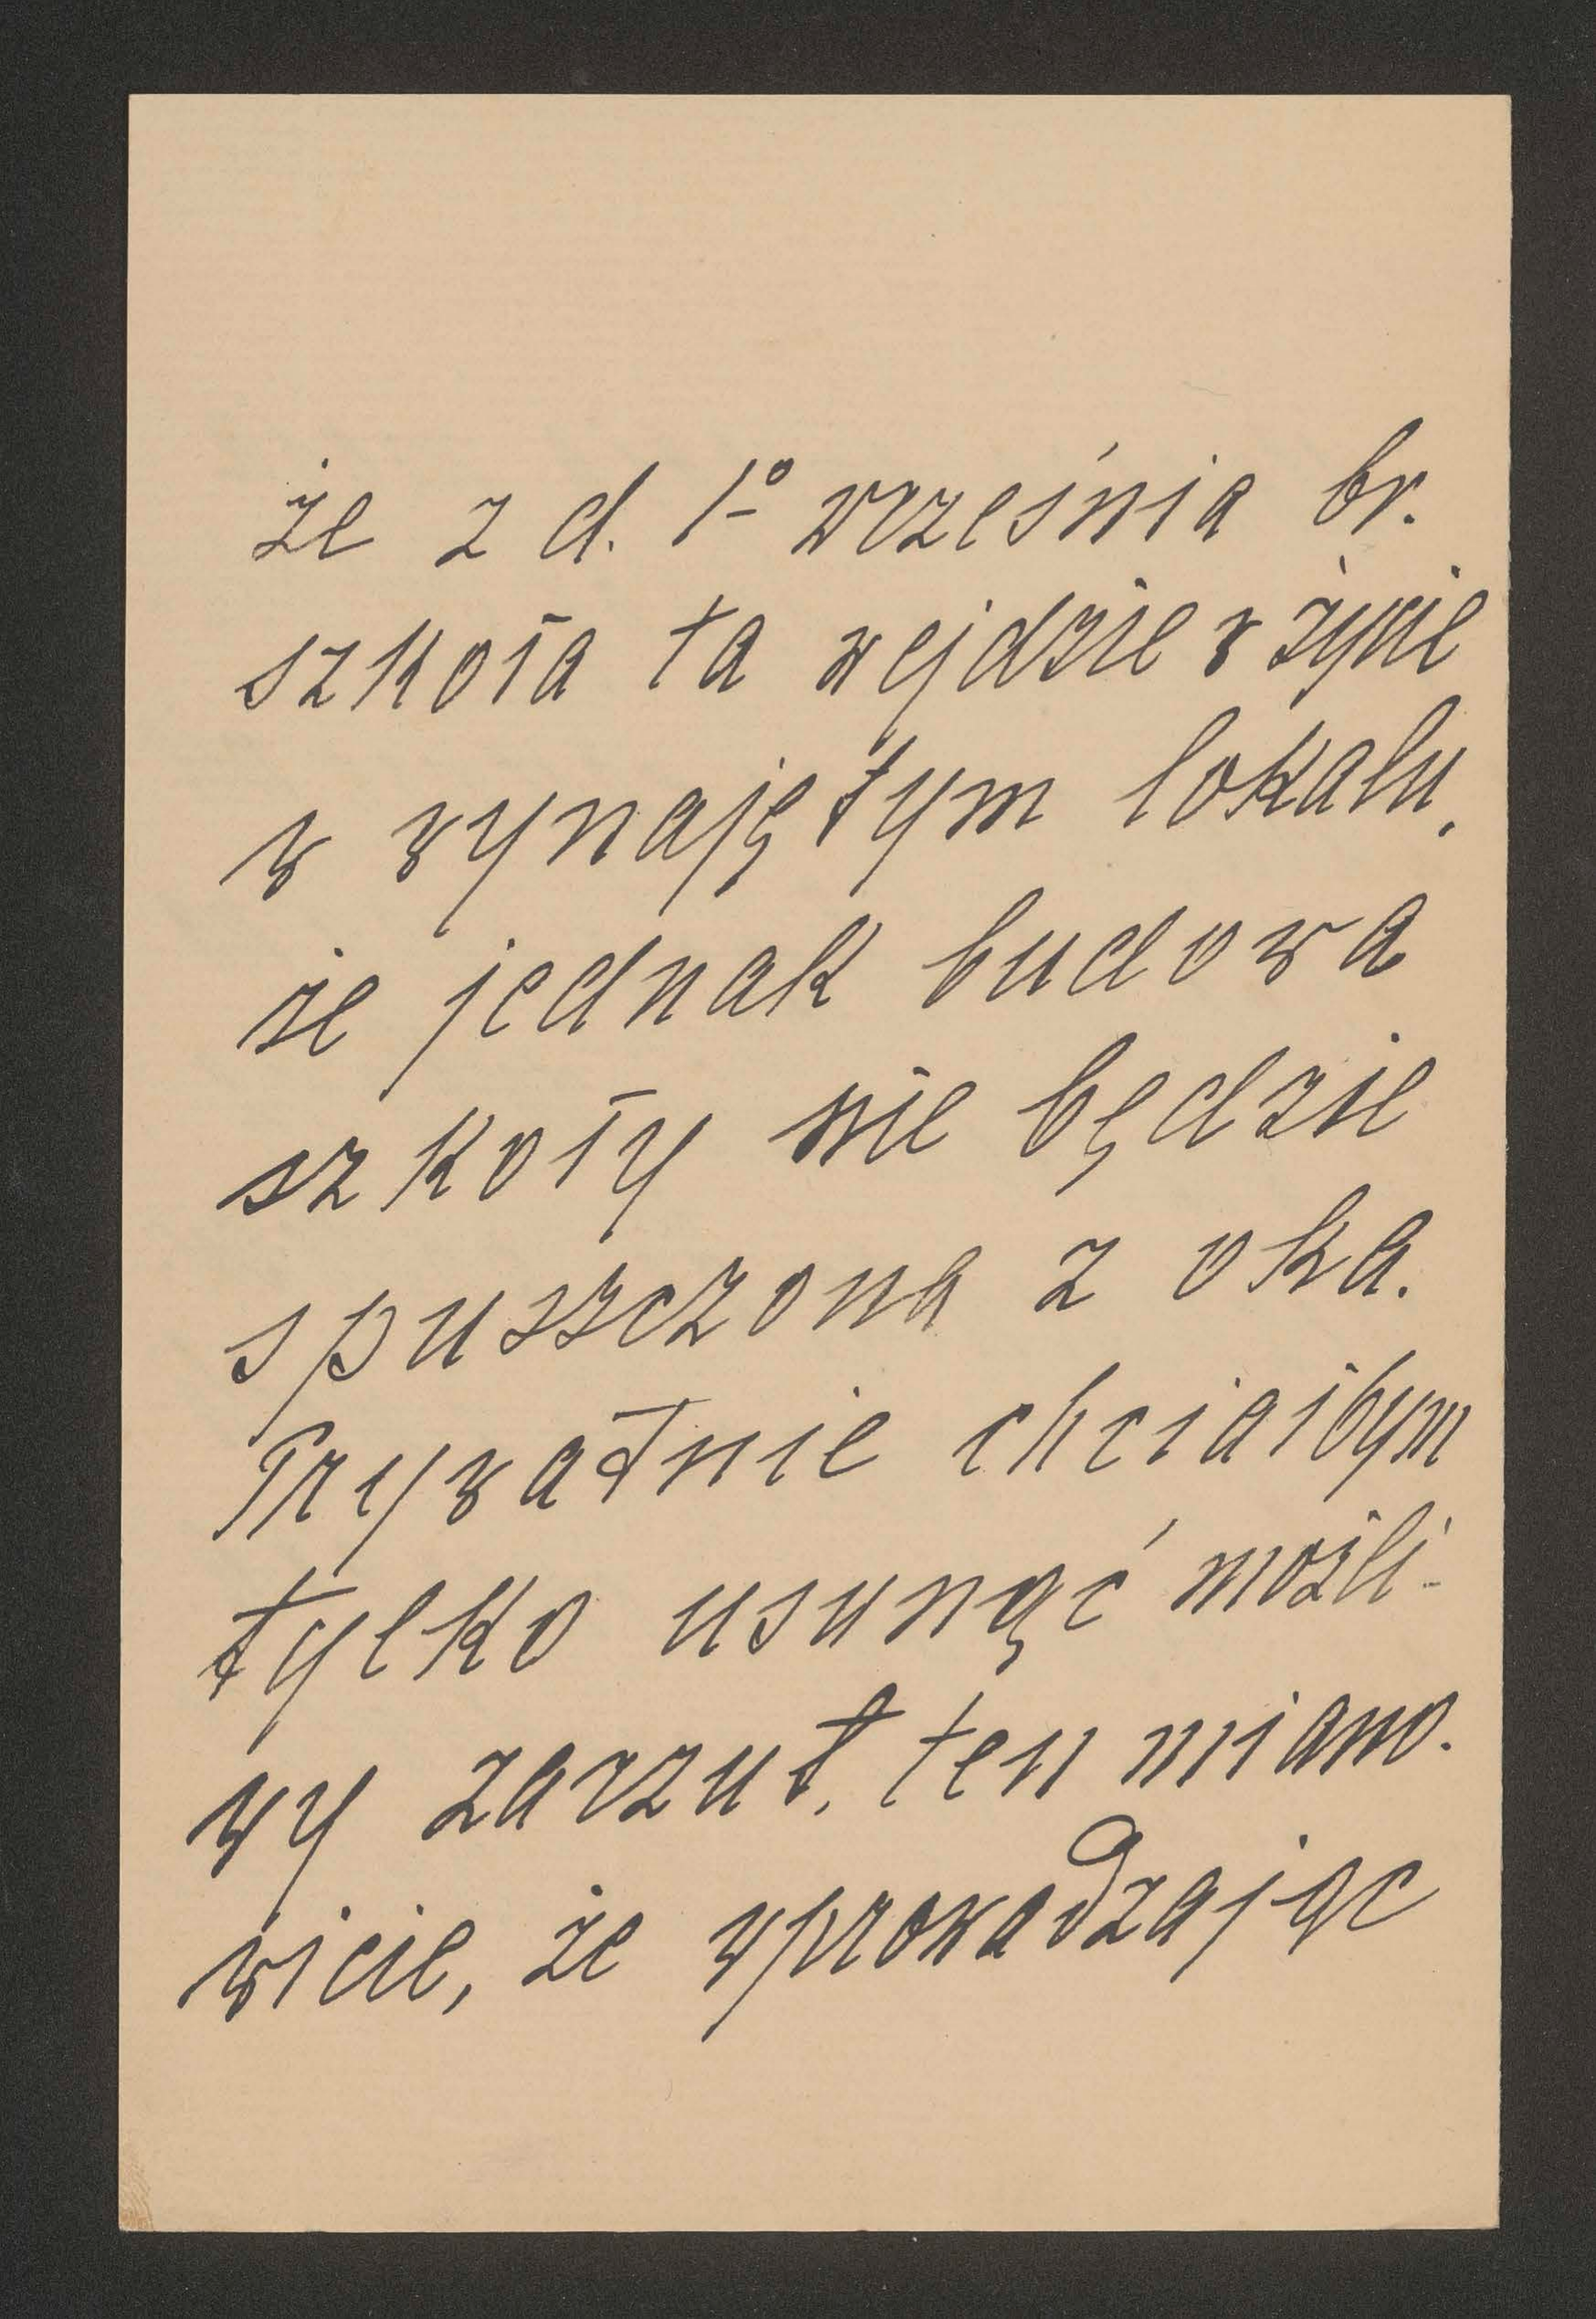 że z d. 1º września br.
szkoła ta wejdzie w życie
w wynajętym lokalu,
że jednak budowa
szkoły nie będzie
spuszczona z oka.
Prywatnie chciałbym
tylko usunąć możli-
wy zarzut, ten miano-
wicie, że wprowadzając